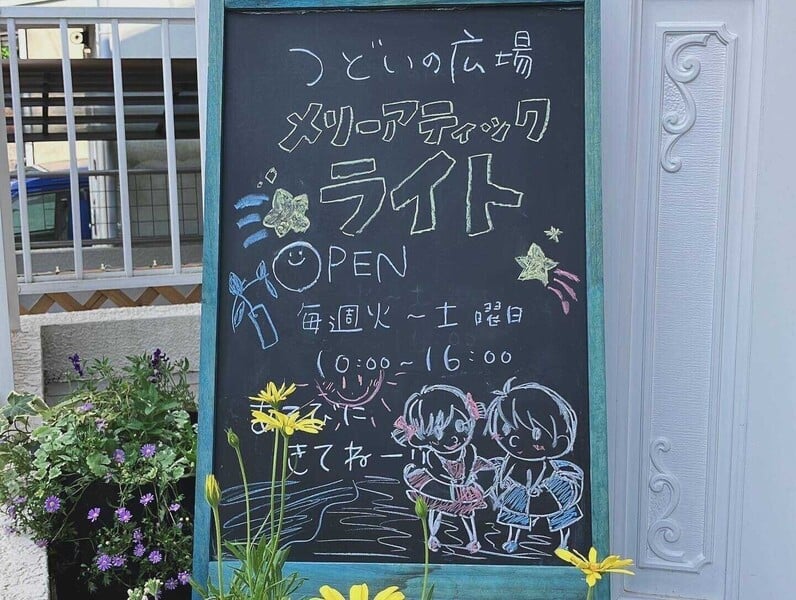 つどいの広場
メリーアティック
ライト
OPEN
毎週火～土曜日
10:00～16:00
あそびに
きてねー!!